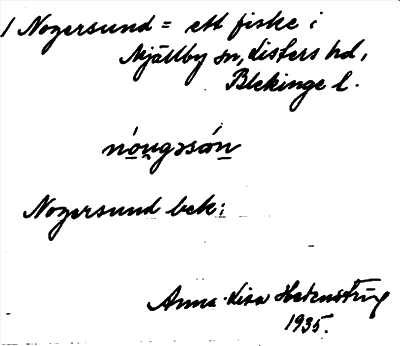 / Nogersund = ett fiske i
Mjällby sn, Listers hd,
Blekinge l.
nóugəsón
Nogersund bek:
Anna-Lisa
1935.